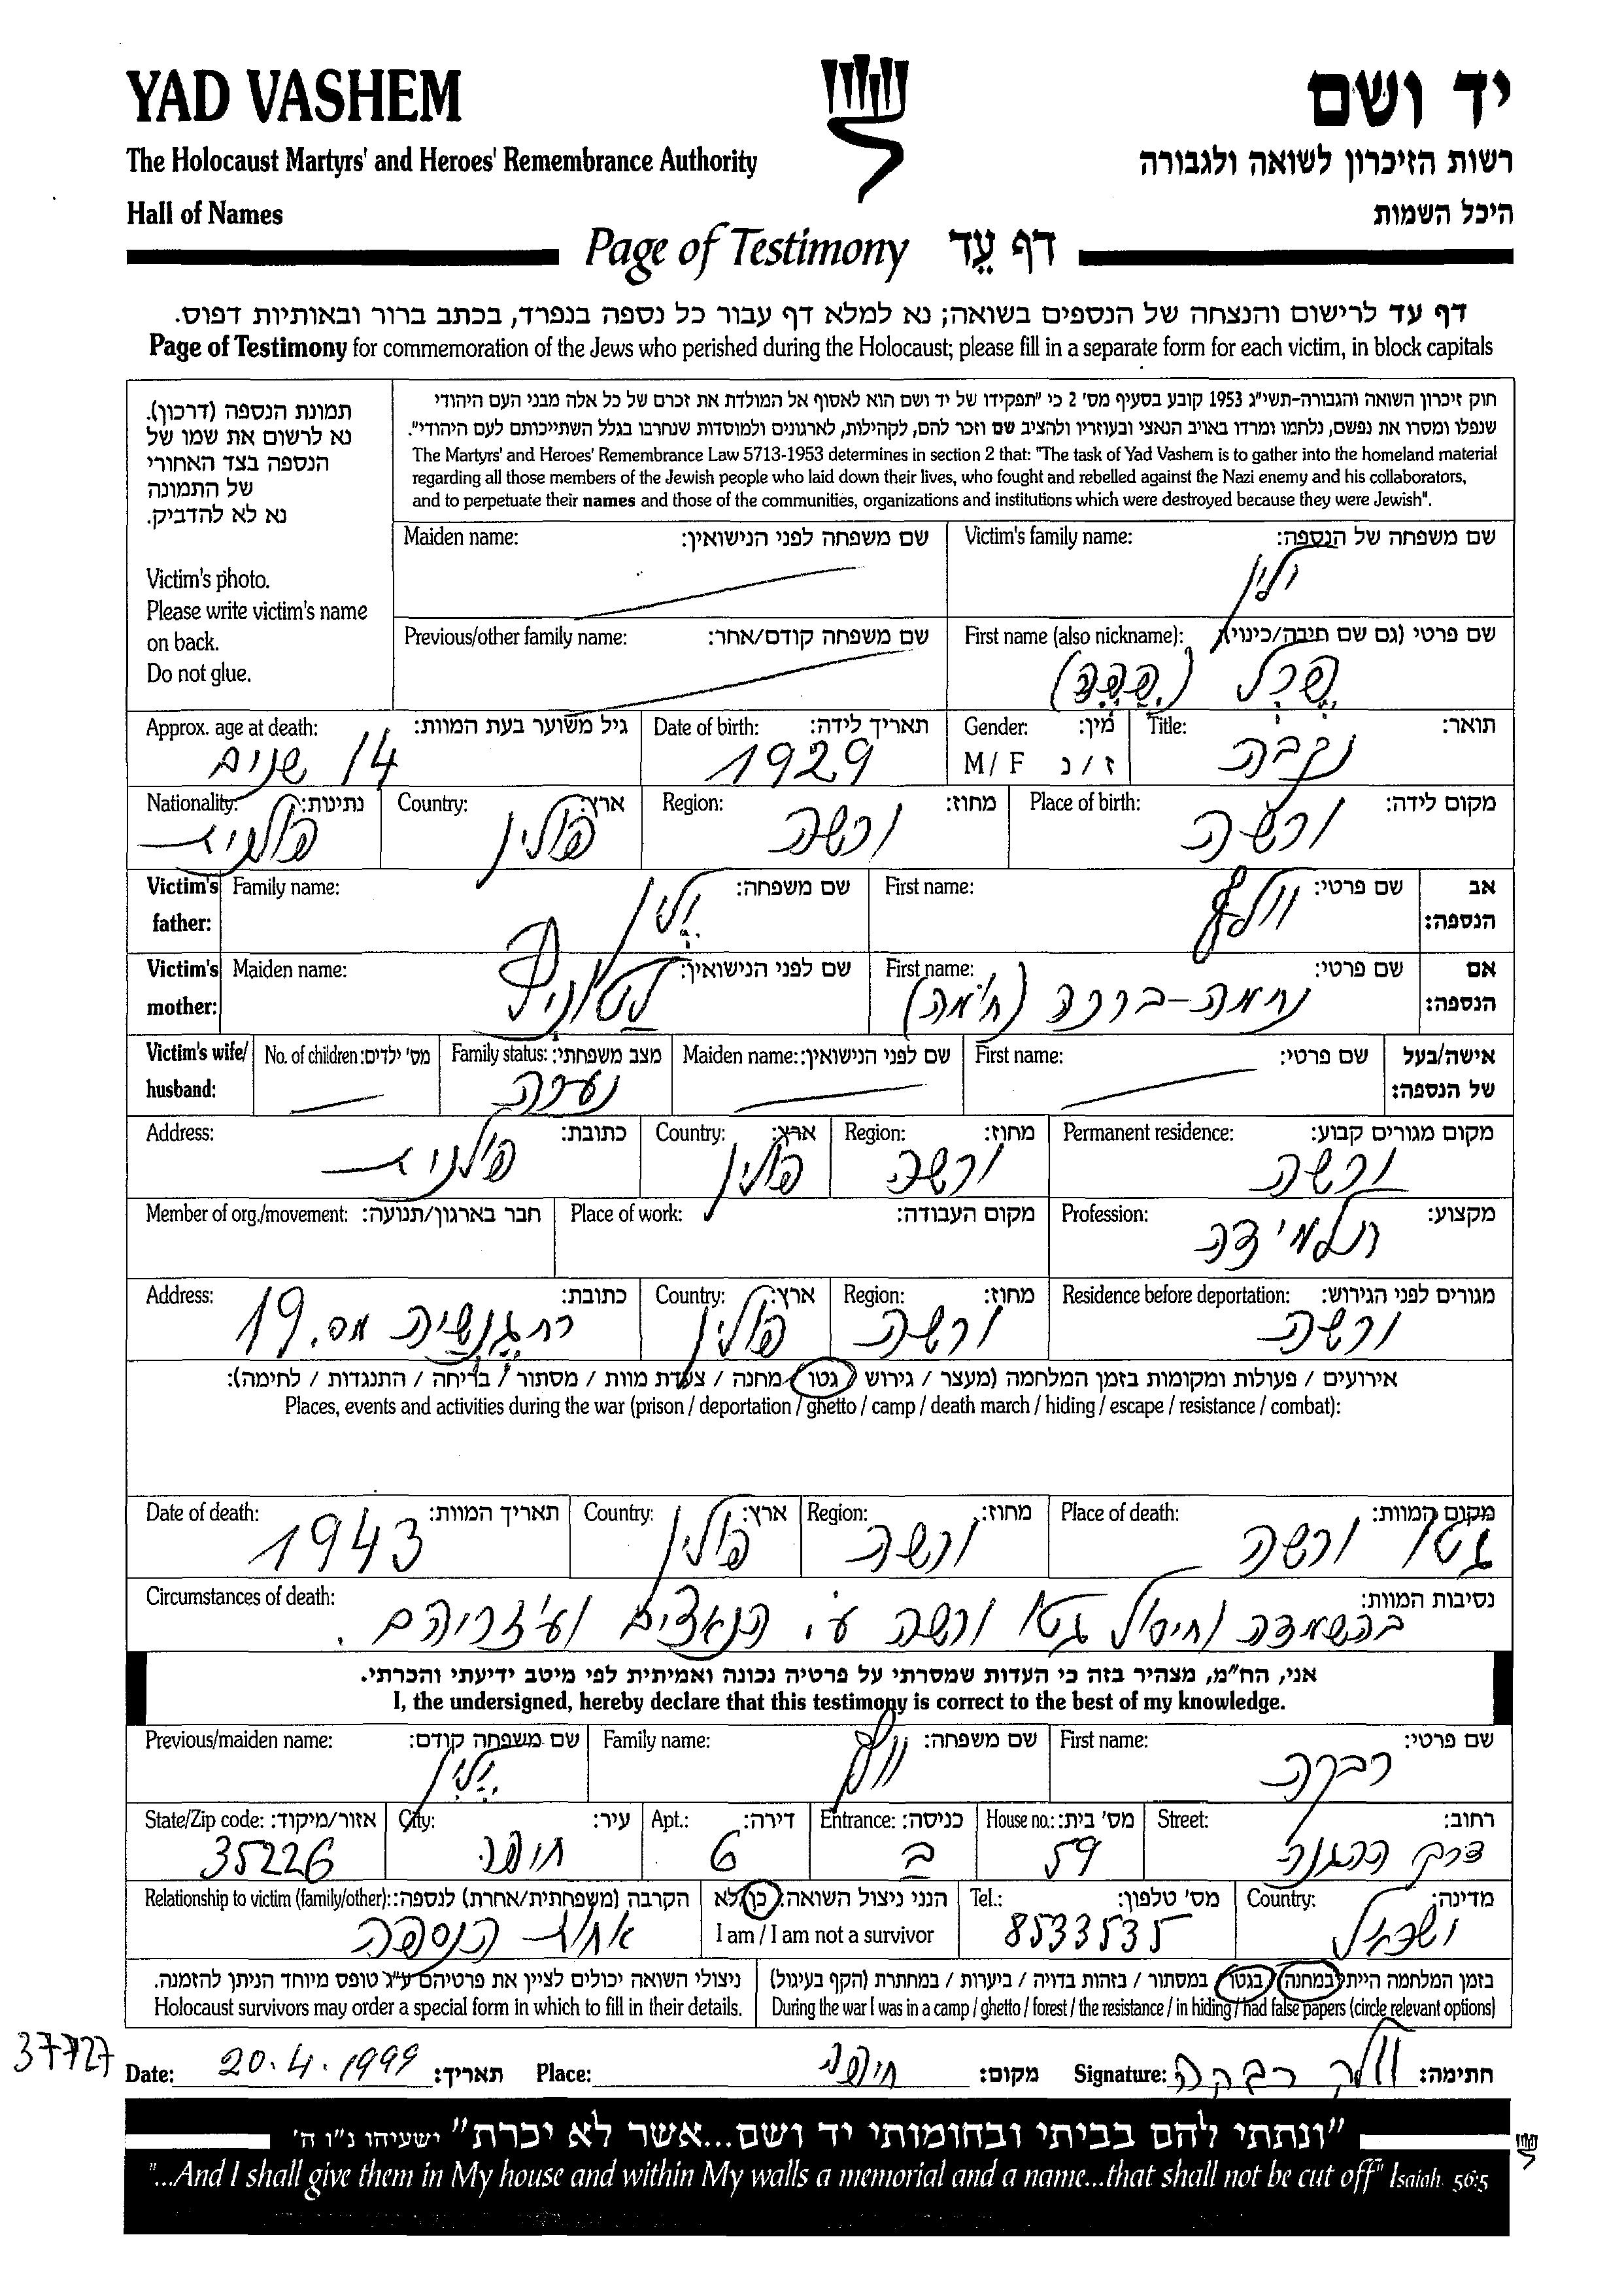 YAD VASHEM
יד ושם
The Holocaust Martyrs' and Heroes' Remembrance Authority
רשות הזיכרון לשואה ולגבורה
Hall of Names
היכל השמות
Page of Testimony דף עֵד
דף עד לרישום והנצחה של הנספים בשואה; נא למלא דף עבור כל נספה בנפרד, בכתב ברור ובאותיות דפוס.
Page of Testimony for commemoration of the Jews who perished during the Holocaust; please fill in a separate form for each victim, in block capitals
תמונת הנספה (דרכון).
נא לרשום את שמו של
הנספה בצד האחורי
של התמונה
נא לא להדביק.
Victim's photo.
Please write victim's name
on back.
Do not glue.
חוק זיכרון השואה והגבורה-תשי"ג 1953 קובע בסעיף מס' 2 כי "תפקידו של יד ושם הוא לאסוף אל המולדת את זכרם של כל אלה מבני העם היהודי
שנפלו ומסרו את נפשם, נלחמו ומרדו באויב הנאצי ובעוזריו ולהציב שם וזכר להם, לקהילות, לארגונים ולמוסדות שנחרבו בגלל השתייכותם לעם היהודי".
The Martyrs' and Heroes' Remembrance Law 5713-1953 determines in section 2 that: "The task of Yad Vashem is to gather into the homeland material
regarding all those members of the Jewish people who laid down their lives, who fought and rebelled against the Nazi enemy and his collaborators,
and to perpetuate their names and those of the communities, organizations and institutions which were destroyed because they were Jewish".
Victim's family name: שם משפחה של הנספה:
ילין
Maiden name: שם משפחה לפני הנישואין:
First name (also nickname): שם פרטי (גם שם חיבה/כינוי):
Previous/other family name: שם משפחה קודם/אחר:
Title: תואר:
נקבה
Gender: מין:
M / F ז / נ
Date of birth: תאריך לידה:
1929
Approx. age at death: גיל משוער בעת המוות:
14 שנים
Place of birth: מקום לידה:
ורשה
Region: מחוז:
ורשה
Country: ארץ:
פולין
Nationality: נתינות:
פולנית
Victim's father: אב הנספה:
First name: שם פרטי:
וולף
Family name: שם משפחה:
ילין
Victim's mother: אם הנספה:
First name: שם פרטי:
נחמה-ברכה
Maiden name: שם לפני הנישואין:
Victim's wife/ husband: אישה/בעל של הנספה:
First name: שם פרטי:
Maiden name: שם לפני הנישואין:
Family status: מצב משפחתי:
נערה
No. of children: מס' ילדים:
Permanent residence: מקום מגורים קבוע:
ורשה
Region: מחוז:
ורשה
Country: ארץ:
פולין
Address: כתובת:
פולנית
Profession: מקצוע:
תלמידה
Place of work: מקום העבודה:
Member of org./movement: חבר בארגון/תנועה:
Residence before deportation: מגורים לפני הגירוש:
ורשה
Region: מחוז:
ורשה
Country: ארץ:
פולין
Address: כתובת:
רח גנשיה מס. 19
אירועים / פעולות ומקומות בזמן המלחמה (מעצר / גירוש / גטו / מחנה / צעדת מוות / מסתור / בריחה / התנגדות / לחימה):
Places, events and activities during the war (prison / deportation / ghetto / camp / death march / hiding / escape / resistance / combat):
Place of death: מקום המוות:
גטו ורשה
Region: מחוז:
ורשה
Country: ארץ:
פולין
Date of death: תאריך המוות:
1943
Circumstances of death: נסיבות המוות:
בהשמדה וחיסול גטו ורשה ע"י הנאצים ועוזריהם.
אני, הח"מ, מצהיר בזה כי העדות שמסרתי על פרטיה נכונה ואמיתית לפי מיטב ידיעתי והכרתי.
I, the undersigned, hereby declare that this testimony is correct to the best of my knowledge.
First name: שם פרטי:
רבקה
Family name: שם משפחה:
וולף
Previous/maiden name: שם משפחה קודם:
ילין
Street: רחוב:
דרך ההגנה
House no.: מס' בית:
59
Entrance: כניסה:
ב
Apt.: דירה:
6
City: עיר:
חיפה
State/Zip code: אזור/מיקוד:
35226
Country: מדינה:
ישראל
Tel.: מס' טלפון:
8533535
הנני ניצול השואה: כן/לא
I am / I am not a survivor
Relationship to victim (family/other): הקרבה (משפחתית/אחרת) לנספה:
אחות הנספה
בזמן המלחמה הייתי במחנה / בגטו / במסתור / בזהות בדויה / ביערות / במחתרת (הקף בעיגול)
During the war I was in a camp / ghetto / forest / the resistance / in hiding / had false papers (circle relevant options)
ניצולי השואה יכולים לציין את פרטיהם ע"ג טופס מיוחד הניתן להזמנה.
Holocaust survivors may order a special form in which to fill in their details.
37727
Date: 20.4.1999 תאריך:
Place: חיפה מקום:
Signature: וולף רבקה חתימה:
"ונתתי להם בביתי ובחומותי יד ושם...אשר לא יכרת" ישעיהו נ"ו ה'
"...And I shall give them in My house and within My walls a memorial and a name...that shall not be cut off" Isaiah 56:5